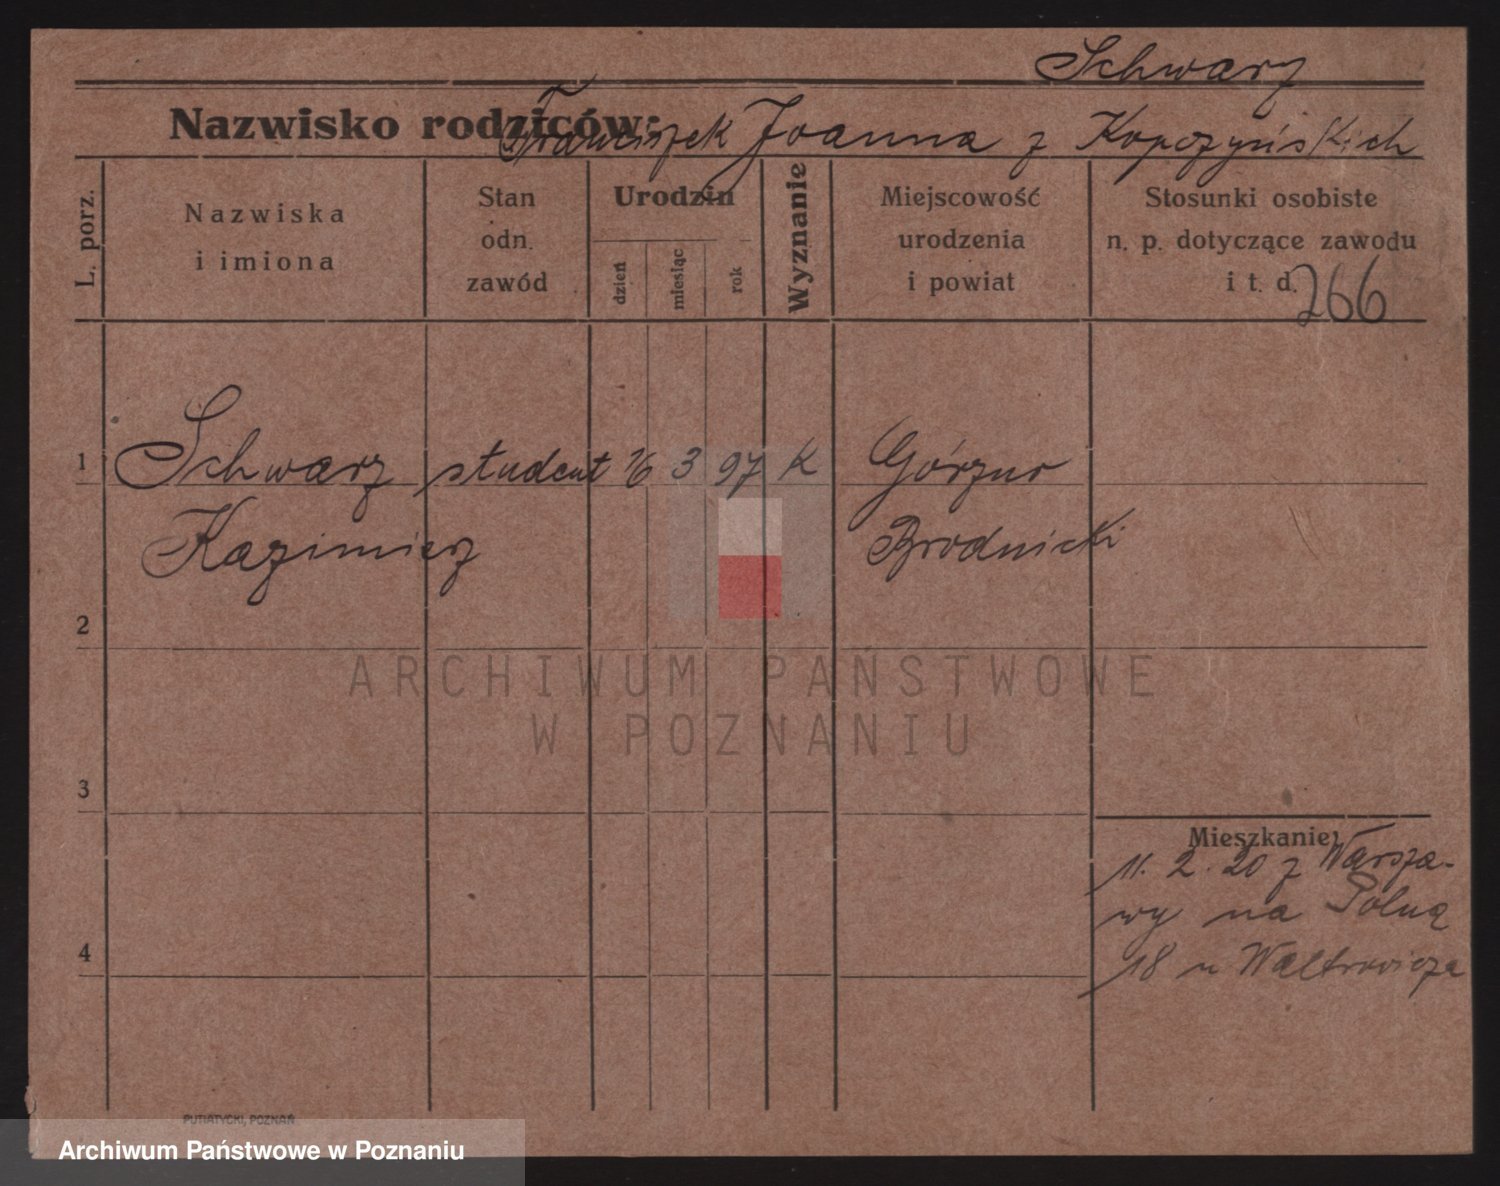 Schwarz
Nazwisko rodziców: Franciszek Joanna z Kopczyńskich
L. porz.
Nazwiska
i imiona
Stan
odn.
zawód
Urodzin
dzień
miesiąc
rok
Wyznanie
Miejscowość
urodzenia
i powiat
Stosunki osobiste
n. p. dotyczące zawodu
i t. d.
266
1 Schwarz student 16 3 97 K
Kazimierz Brodnicki
2
3
4
Mieszkanie:
11. 2. 20 z Warsza-
wy na Polną
18 u
PUTIATYCKI, POZNAŃ
ARCHIWUM PAŃSTWOWE
W POZNANIU
Archiwum Państwowe w Poznaniu